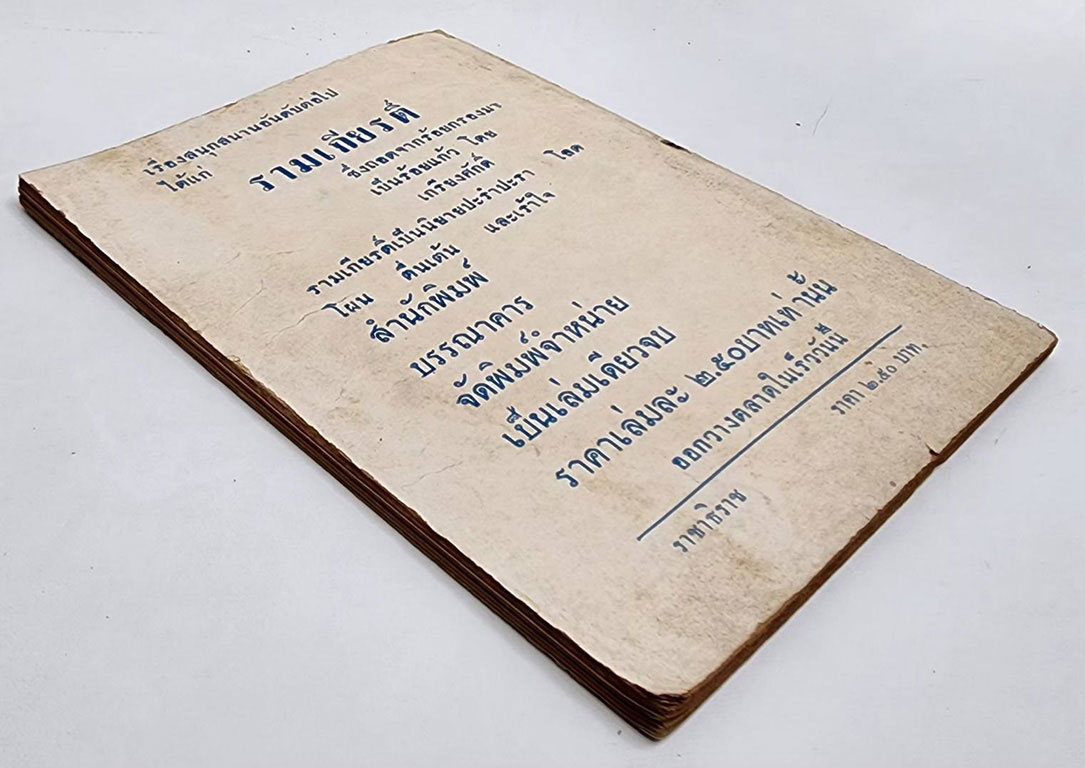 เรื่องสนุกสนานอันดับต่อไป
ได้แก่
รามเกียรติ์
ซึ่งถอดจากร้อยกรองมา
เป็นร้อยแก้ว โดย
เกรียงศักดิ์
รามเกียรติ์เป็นนิยายปะรำปะรา โอด
โผน ตื่นเต้น และเร้าใจ
สำนักพิมพ์
บรรณาคาร
จัดพิมพ์จำหน่าย
เป็นเล่มเดียวจบ
ราคาเล่มละ ๒.๕๐บาทเท่านั้น
ออกวางตลาดในเร็ววันนี้
ราชาธิราช ราคา ๒.๕๐ บาท.